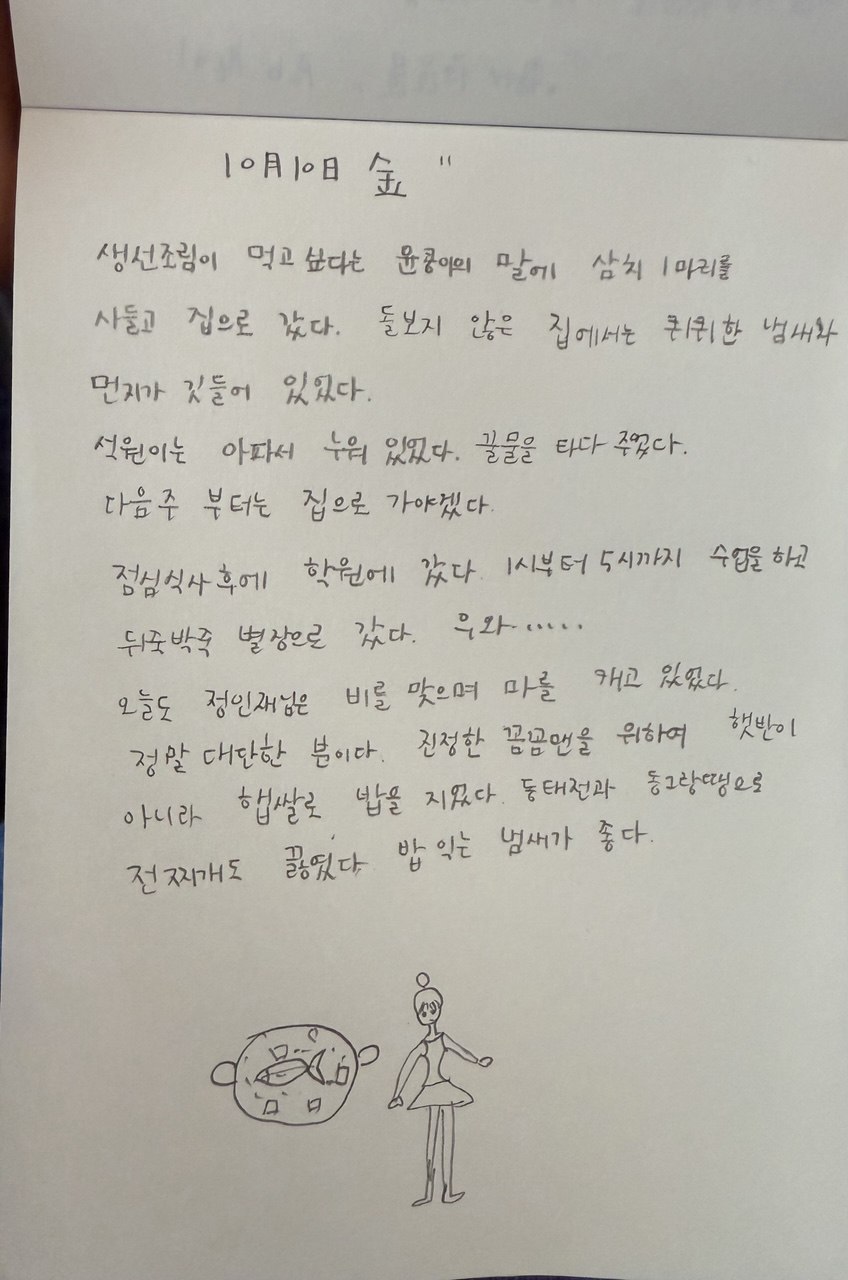 10月10日 金 "
생선조림이 먹고 싶다는 윤쿵이의 말에 삼치 1마리를
사들고 집으로 갔다. 돌보지 않은 집에서는 퀴퀴한 냄새와
먼지가 깃들어 있었다.
석원이는 아파서 누워 있었다. 꿀물을 타다 주었다.
다음주 부터는 집으로 가야겠다.
점심식사후에 학원에 갔다. 1시부터 5시까지 수업을하고
뒤죽박죽 별장으로 갔다. 우와.....
오늘도 정인재님은 비를 맞으며 마를 캐고 있었다.
정말 대단한 분이다. 진정한 꼼꼼맨을 위하여 햇반이
아니라 햅쌀로 밥을 지었다. 동태전과 동그랑땡으로
전찌개도 끓였다. 밥 익는 냄새가 좋다.